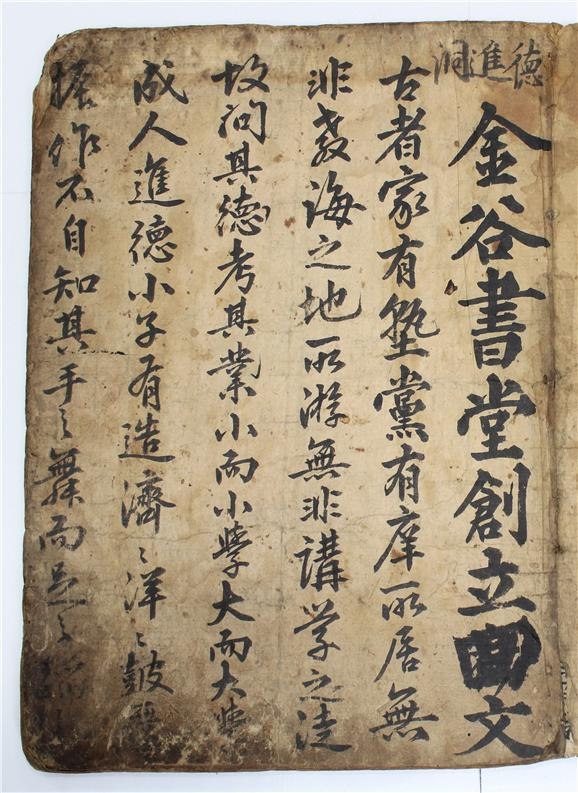 德進洞
金谷書堂創立文
古者家有塾黨有庠所居無
非教誨之地所游無非講学之徒
故问其德考其業小而小學大而大
成人進德小子有造濟〻洋〻皷
振作不自知其手之舞而足之蹈